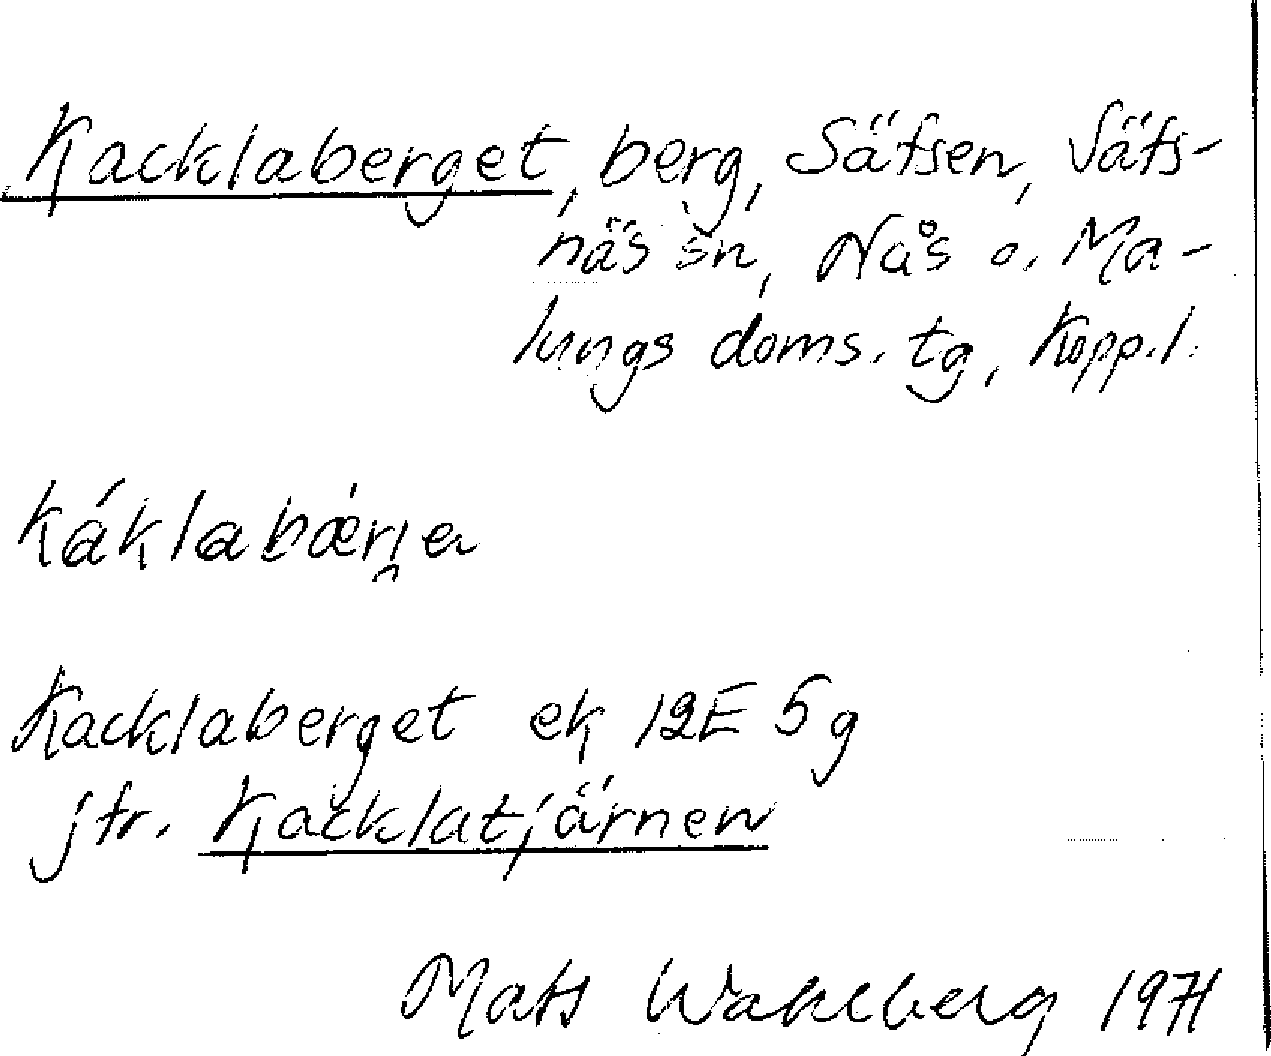 Kacklaberget, berg, Säfsen, Säfs-
näs sn, Nås o. Ma-
lungs doms. tg, Kopp. l.
Kacklaberget ek 12E 5g
jfr. Kacklatjärnen
Mats Wahlberg 1971